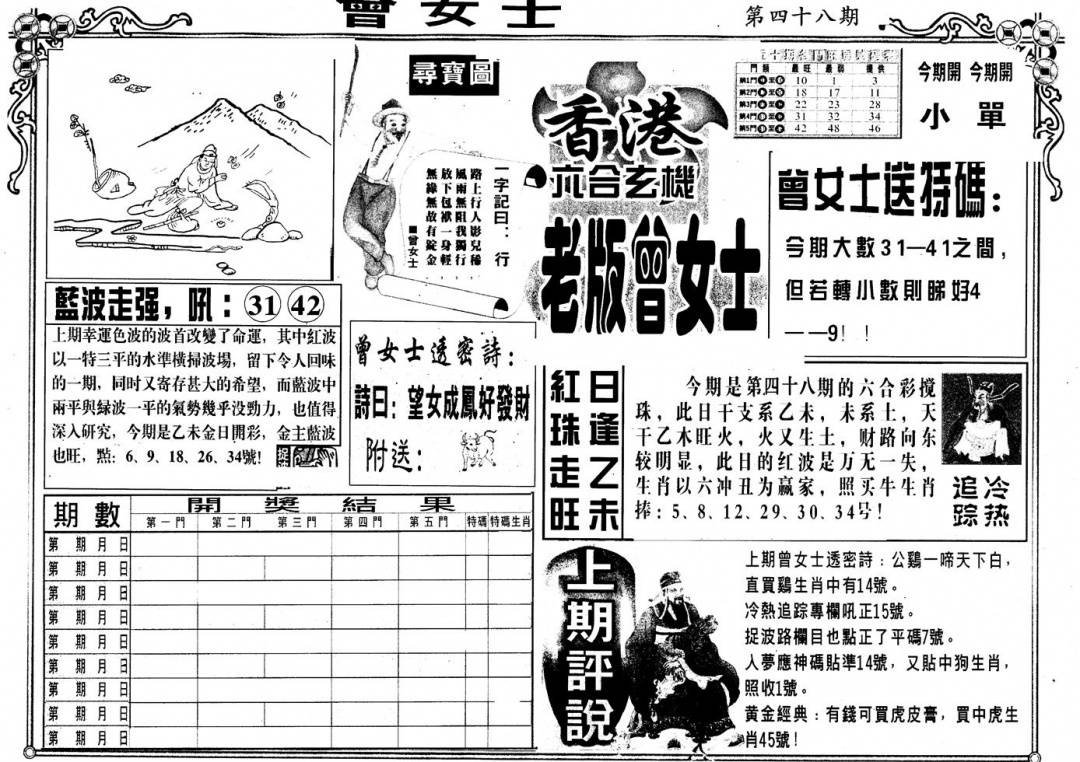 曾女士
第四十八期
尋寶圖
一字記曰：行
路上行人影兒稀
風雨無阻我獨行
放下包袱一身輕
無緣無故有錠金
■曾女士
香港
六合玄機
老版曾女士
門類 最旺 最弱 提供
第1門 至 10 1 3
第2門 至 18 17 11
第3門 至 22 23 28
第4門 至 31 32 34
第5門 至 42 48 46
今期開 今期開
小 單
曾女士送特碼：
今期大數31—41之間，
但若轉小數則睇好4
——9！！
藍波走强，吼：31 42
上期幸運色波的波首改變了命運，其中紅波
以一特三平的水準橫掃波場，留下令人回味
的一期，同时又寄存甚大的希望，而藍波中
兩平與緑波一平的氣勢幾乎没勁力，也值得
深入研究，今期是乙未金日開彩，金主藍波
也旺，點：6、9、18、26、34號！
曾女士透密詩：
詩曰：望女成鳳好發財
附送：
紅珠走旺
日逢乙未
今期是第四十八期的六合彩搅
珠，此日干支系乙未，未系土，天
干乙木旺火，火又生土，财路向东
较明显，此日的红波是万无一失，
生肖以六冲丑为赢家，照买牛生肖
捧：5、8、12、29、30、34号！
冷热
追踪
期數 開獎結果
第一門 第二門 第三門 第四門 第五門 特碼 特碼生肖
第 期 月 日
第 期 月 日
第 期 月 日
第 期 月 日
第 期 月 日
第 期 月 日
第 期 月 日
第 期 月 日
第 期 月 日
上期評說
上期曾女士透密詩：公鷄一啼天下白，
直買鷄生肖中有14號。
冷熱追踪專欄吼正15號。
捉波路欄目也點正了平碼7號。
人夢應神碼貼準14號，又貼中狗生肖，
照收1號。
黄金經典：有錢可買虎皮膏，買中虎生
肖45號！